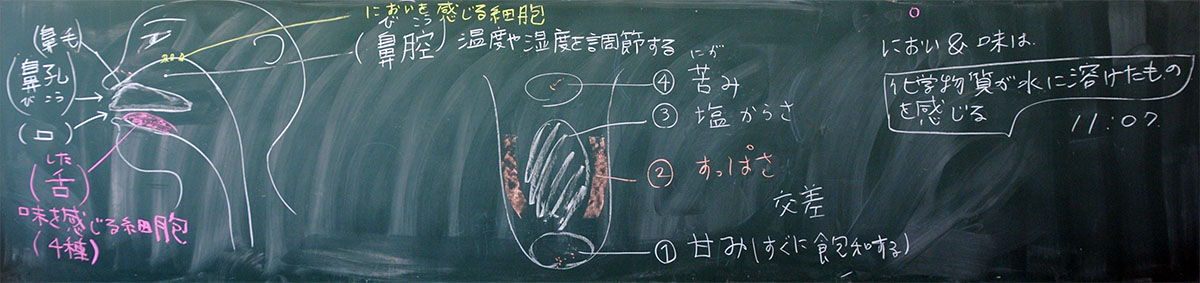 鼻毛
(鼻孔)
びこう
(口)
した
(舌)
味を感じる細胞
(4種)
においを感じる細胞
びこう
(鼻腔) 温度や湿度を調節する
にが
④ 苦み
③ 塩からさ
② すっぱさ
交差
① 甘み(すぐに飽和する)
におい&味は
化学物質が水に溶けたもの
を感じる
11:07